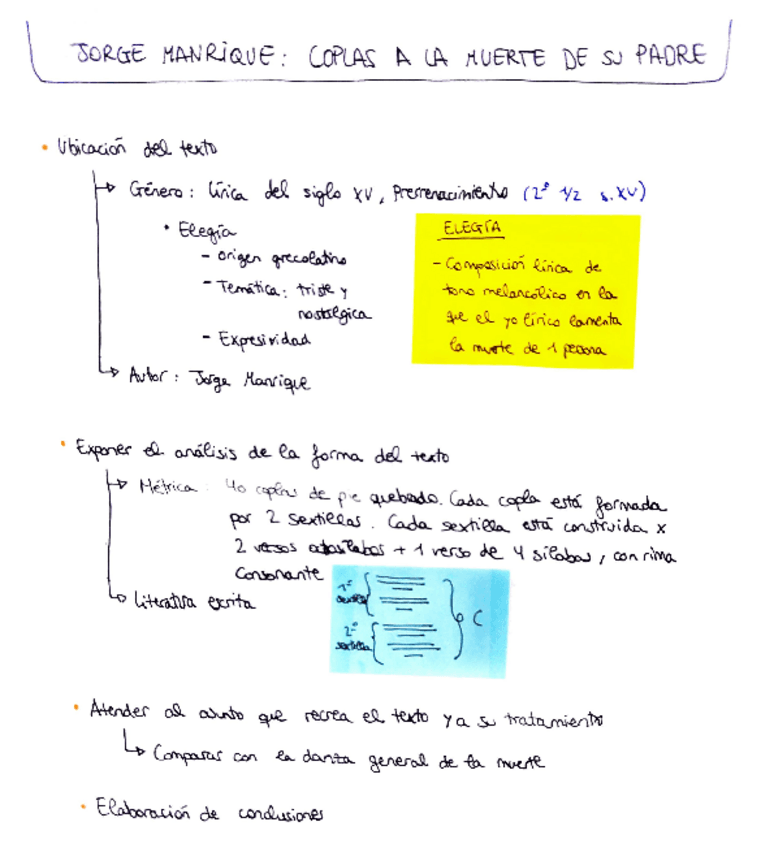 JORGE MANRIQUE: COPLAS A LA MUERTE DE SU PADRE
• Ubicación del texto
Género: lírica del siglo XV, Prerrenacimiento (2ª 1/2 s.XV)
• Elegía
- origen grecolatino
- Temática: triste y
nostálgica
- Expresividad
ELEGÍA
- Composición lírica de
tono melancólico en la
que el yo lírico lamenta
la muerte de 1 persona
Autor: Jorge Manrique
• Exponer el análisis de la forma del texto
Métrica: 40 coplas de pie quebrado. Cada copla está formada
por 2 sextillas. Cada sextilla está construida x
2 versos octosílabos + 1 verso de 4 sílabas, con rima
consonante
1ª
sextilla
2ª
sextilla
C
Literatura escrita
• Atender al asunto que recrea el texto y a su tratamiento
Comparar con la danza general de la muerte
• Elaboración de conclusiones